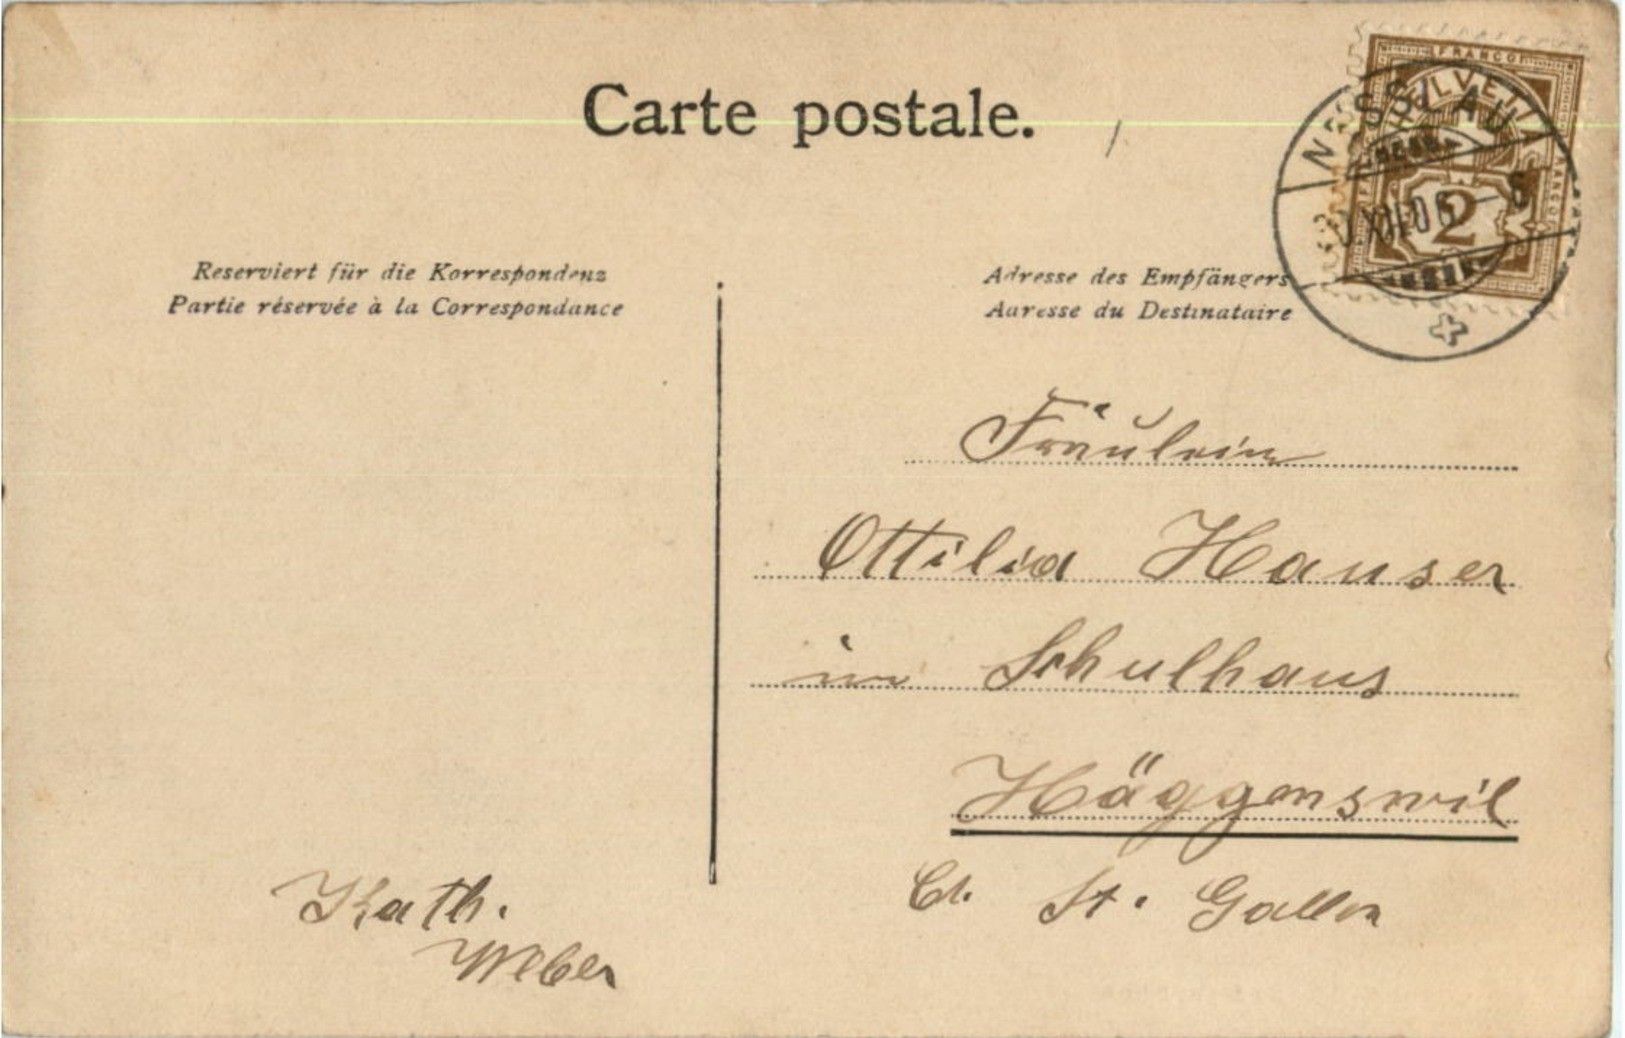 Carte postale.
FRANCO
HELVETIA
FRANCO
2
NESSLAU
XII.06 – 8
Reserviert für die Korrespondenz
Partie réservée à la Correspondance
Adresse des Empfängers
Adresse du Destinataire
Fräulein
Ottilia Hauser
im Schulhaus
Häggenswil
Ct. St. Gallen
Kath.
Weber